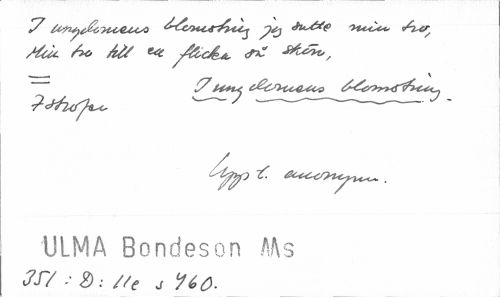 I ungdomens blomstring jeg satte min tro,
Min tro till en flicka så skön,
=
7 strofer
I ungdomens blomstring.
Uppt. anonym.
ULMA Bondeson Ms
351:D:11e s 460.